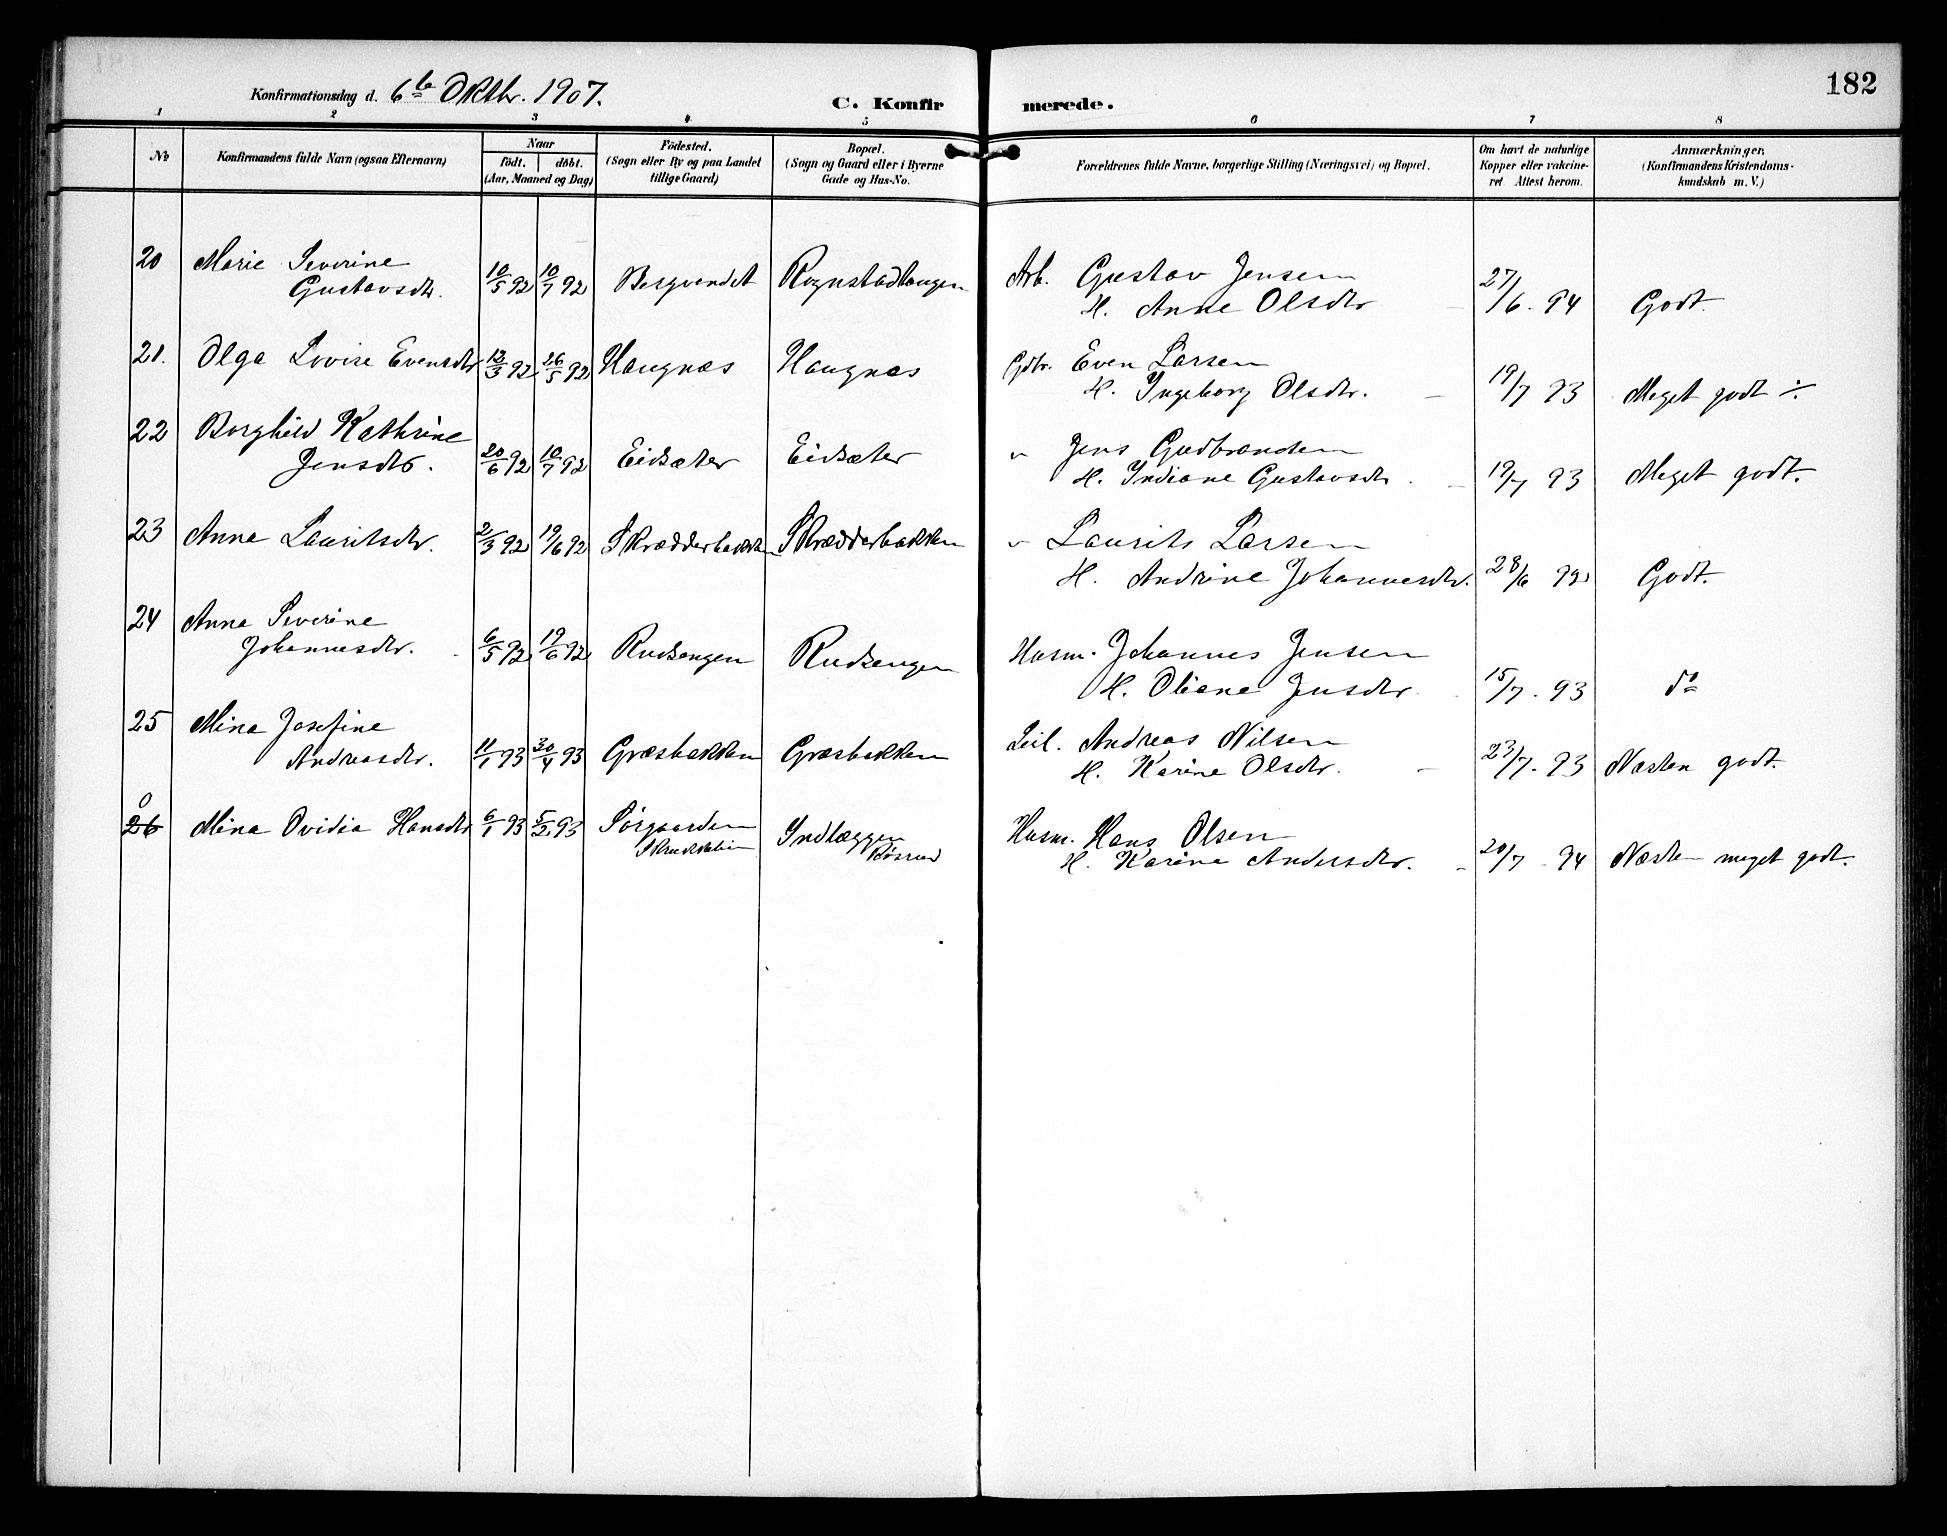 182
Konfirmationsdag d. 6te Oktbr. 1907.
C. Konfirmerede.
1 2 3 4 5 6 7 8
No
Konfirmandens fulde Navn (ogsaa Efternavn)
Naar
födt. döbt.
(Aar, Maaned og Dag)
Födested.
(Sogn eller By og paa Landet
tillige Gaard)
Bopæl.
(Sogn og Gaard eller i Byerne
Gade og Hus-No.
Forældrenes fulde Navne, borgerlige Stilling (Næringsvei) og Bopæl.
Om havt de naturlige
Kopper eller vakcine-
ret Attest herom.
Anmærkninger.
(Konfirmandens Kristendoms-
kundskab m. V.)
20 Marie Severine
Gustavsdtr. 10/5 92 10/7 92 Rognstadhaugen
Arb. Gustav Jensen
H. Anne Olsdtr 27/6 - 94 Godt.
21. Olga Lovise Evensdtr 13/3 92 26/5 92 Haugnæs Haugnæs
Gdbr. Even Larsen
H. Ingeborg Olsdtr. 19/7 93 Meget godt ÷
22 Borghild Kathrine
Jensdtr. 20/6 92 10/7 92 Eidsæter Eidsæter
" Jens Gudbrandsen
H. Indiane Gustavsdtr. 19/7 93 Meget godt.
23 Anna Lauritsdtr. 2/3 92 19/6 92 Skrædderbakken Skrædderbakken
" Laurits Larsen
H. Andrine Johannesdtr. 28/6 92 Godt.
24 Anna Severine
Johannesdtr. 6/5 92 19/6 92 Rudsengen Rudsengen
Husm. Johannes Jensen
H. Oliane Jensdtr 15/7 - 93 do
25 Mina Josefine
Andreasdtr. 11/1 93 30/4 93 Græsbakken Græsbakken
Leil. Andreas Nilsen
H. Karine Olsdtr. 23/7 - 93 Næsten godt.
0
26 Mina Ovidia Hansdtr 6/1 93 5/2 93 Sørgaarden
Indlæggen
Røsrud
Husm. Hans Olsen
H. Karine Andersdtr. 20/7 - 94 Næsten meget godt.